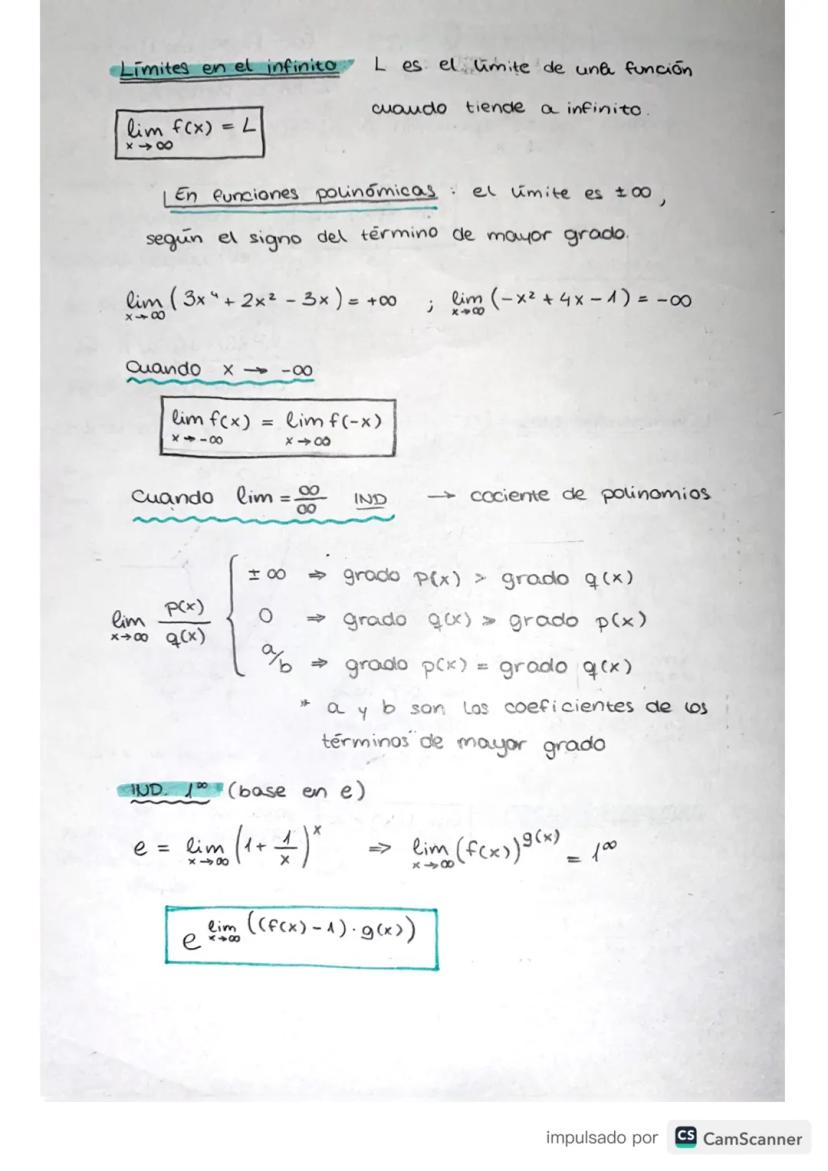 Límites en el infinito L es el límite de una función
cuando tiende a infinito.
lim f(x) = L
x→∞
En funciones polinómicas: el límite es ±∞,
según el signo del término de mayor grado.
lim (3x⁴ + 2x² - 3x) = +∞ ; lim (-x² + 4x - 1) = -∞
x→∞ x→∞
Cuando x → -∞
lim f(x) = lim f(-x)
x→-∞ x→∞
Cuando lim = ∞/∞ IND → cociente de polinomios
lim p(x)/q(x)
x→∞
±∞ ⇒ grado p(x) > grado q(x)
0 ⇒ grado q(x) > grado p(x)
a/b ⇒ grado p(x) = grado q(x)
* a y b son los coeficientes de los
términos de mayor grado
IND. 1^∞ (base en e)
e = lim (1 + 1/x)^x ⇒ lim (f(x))^g(x) = 1^∞
x→∞ x→∞
e^lim ((f(x) - 1) · g(x))
x→∞
impulsado por CS CamScanner